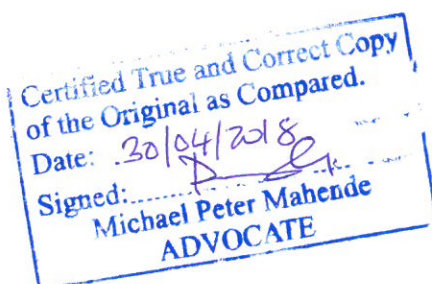 Certified True and Correct Copy
of the Original as Compared.
Date: 30/04/2018
Signed:
Michael Peter Mahende
ADVOCATE